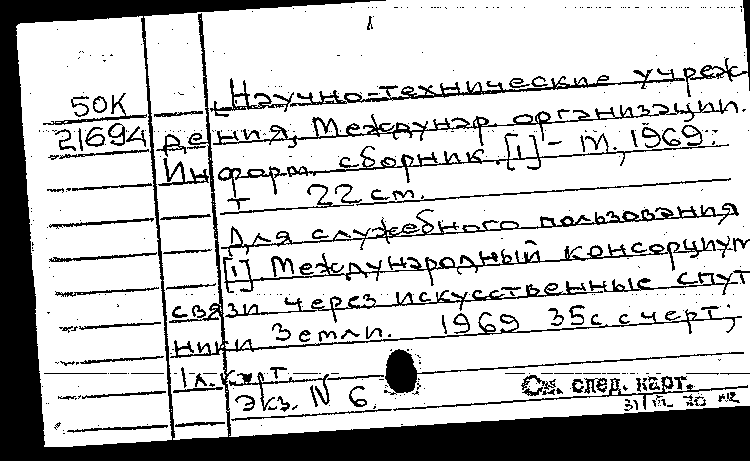 1
50К [Научно-технические учреж
21694 дения, Междунар. организации.
Информ. сборник. [1] - М., 1969.
т 22 см.
Для служебного пользования
[1]. Международный консорциум
связи через искусственные спут
ники Земли. 1969 35с с черт;
1 л. карт.
Экз. N 6.
См. след. карт.